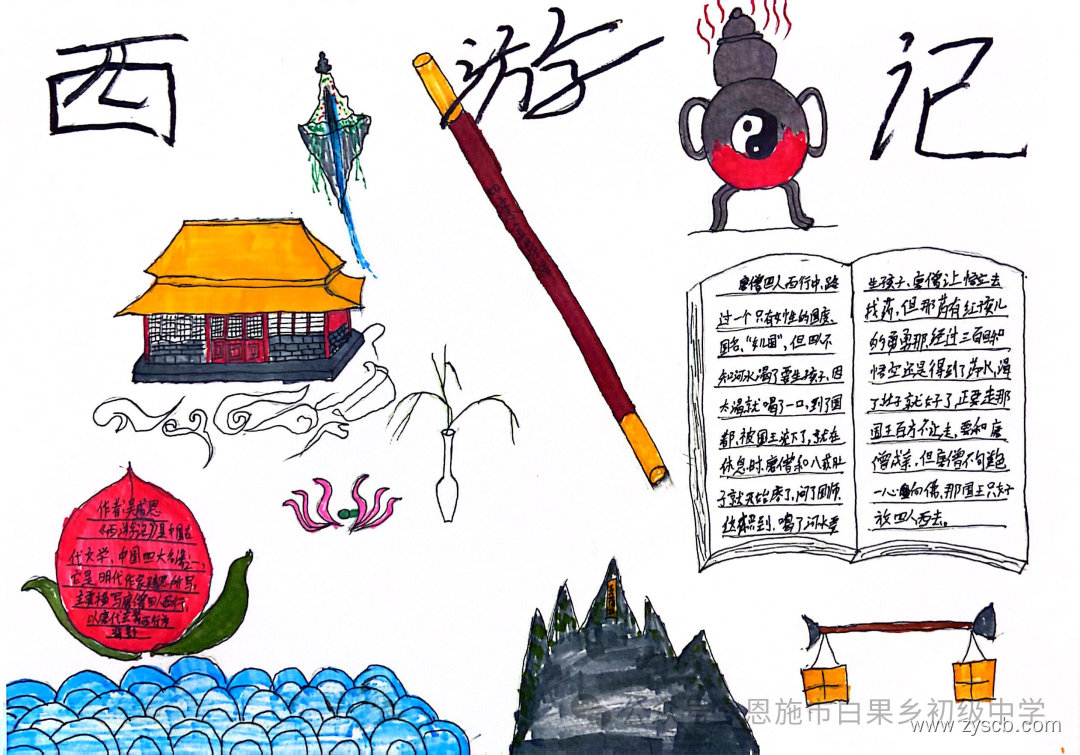 西游记
唐僧四人西行中,路
过一个只有女性的国度,
国名,“女儿国”,但四人不
知河水喝了要生孩子,因
太渴就喝了一口,到了国
都,被国王
休息时,唐僧和八戒肚
子就开始疼了,问了国师,
喝了河水要
生孩子,唐僧让悟空去
找药,但那药有红孩儿
的舅舅那,经过三百回和
悟空还是得到了药水,渴
了肚子就好了,正要走那
国王百方不让走,要和唐
僧成亲,但唐僧不
一心向佛,那国王只好
放四人西去。
作者:吴成恩
《西游记》是中国古
代文学,中国四大名著之一,
它是明代作家
主要描写唐僧四人西行,
以唐代玄
背影
恩施市白果乡初级中学
www.zyscb.com